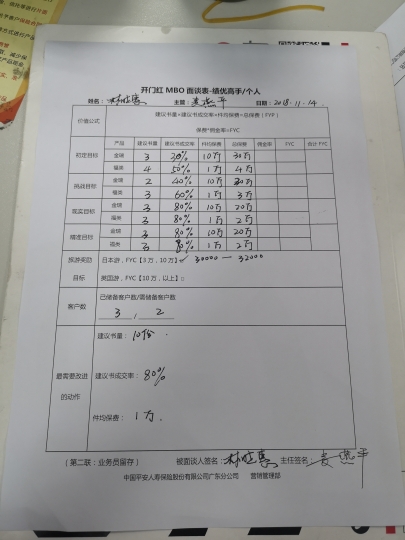 开门红 MBO 面谈表-绩优高手/个人
姓名: 主管: 日期: 2018.11.14.
价值公式 建议书量×建议书成交率×件均保费=总保费(FYP)
保费*佣金率=FYC
产品 建议书量 建议书成交率 件均保费 总保费 佣金率 FYC 合计FYC
初定目标 金瑞 3 30% 10万 30万
福类 4 50% 1万 4万
挑战目标 金瑞 2 40% 10万 30万
福类 3 60% 1万 3万
现实目标 金瑞 3 80% 10万 20万
福类 3 80% 1万 2万
精准目标 金瑞 3 80% 10万 20万
福类 3 80% 1万 2万
旅游奖励目标 日本游,FYC【3万,10万】✓ 30000—32000
美国游,FYC【10万,以上】□
客户数 已储备客户数/需储备客户数
3 , 2
最需要改进的动作
建议书量: 10份.
建议书成交率: 80%
件均保费: 1万.
(第二联:业务员留存) 被面谈人签名: 主任签名:
中国平安人寿保险股份有限公司广东分公司 营销管理部